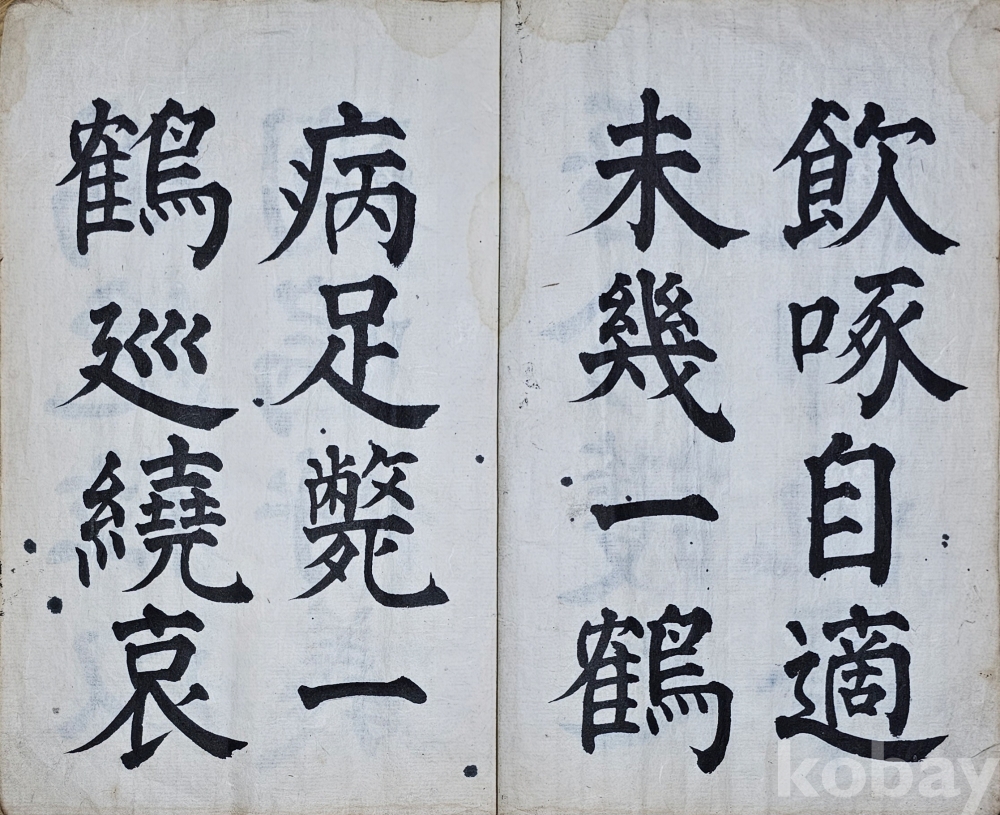 飲啄自適
未幾一鶴
病足斃一
鶴巡繞哀
kobay